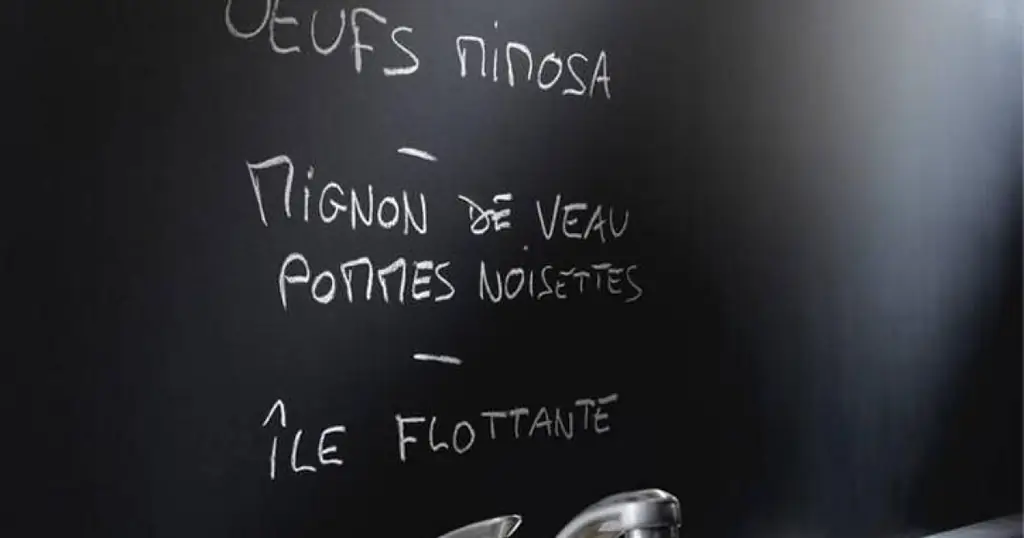 OEUFS MIMOSA
–
MIGNON DE VEAU
POMMES NOISETTES
–
ÎLE FLOTTANTE